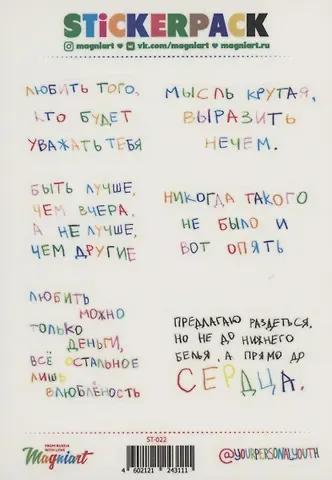 STICKERPACK
magniart vk.com/magniart magniart.ru
ЛЮБИТЬ ТОГО,
КТО БУДЕТ
УВАЖАТЬ ТЕБЯ
МЫСЛЬ КРУТАЯ,
ВЫРАЗИТЬ
НЕЧЕМ.
БЫТЬ ЛУЧШЕ,
ЧЕМ ВЧЕРА,
А НЕ ЛУЧШЕ,
ЧЕМ ДРУГИЕ
НИКОГДА ТАКОГО
НЕ БЫЛО И
ВОТ ОПЯТЬ
ЛЮБИТЬ
МОЖНО
ТОЛЬКО
ДЕНЬГИ,
ВСЁ ОСТАЛЬНОЕ
ЛИШЬ
ВЛЮБЛЁНОСТЬ
ПРЕДЛАГАЮ РАЗДЕТЬСЯ,
НО НЕ ДО НИЖНЕГО
БЕЛЬЯ, А ПРЯМО ДО
СЕРДЦА.
FROM RUSSIA
WITH LOVE
Magniart
ST-022
4 602121 243111
@YOURPERSONALYOUTH